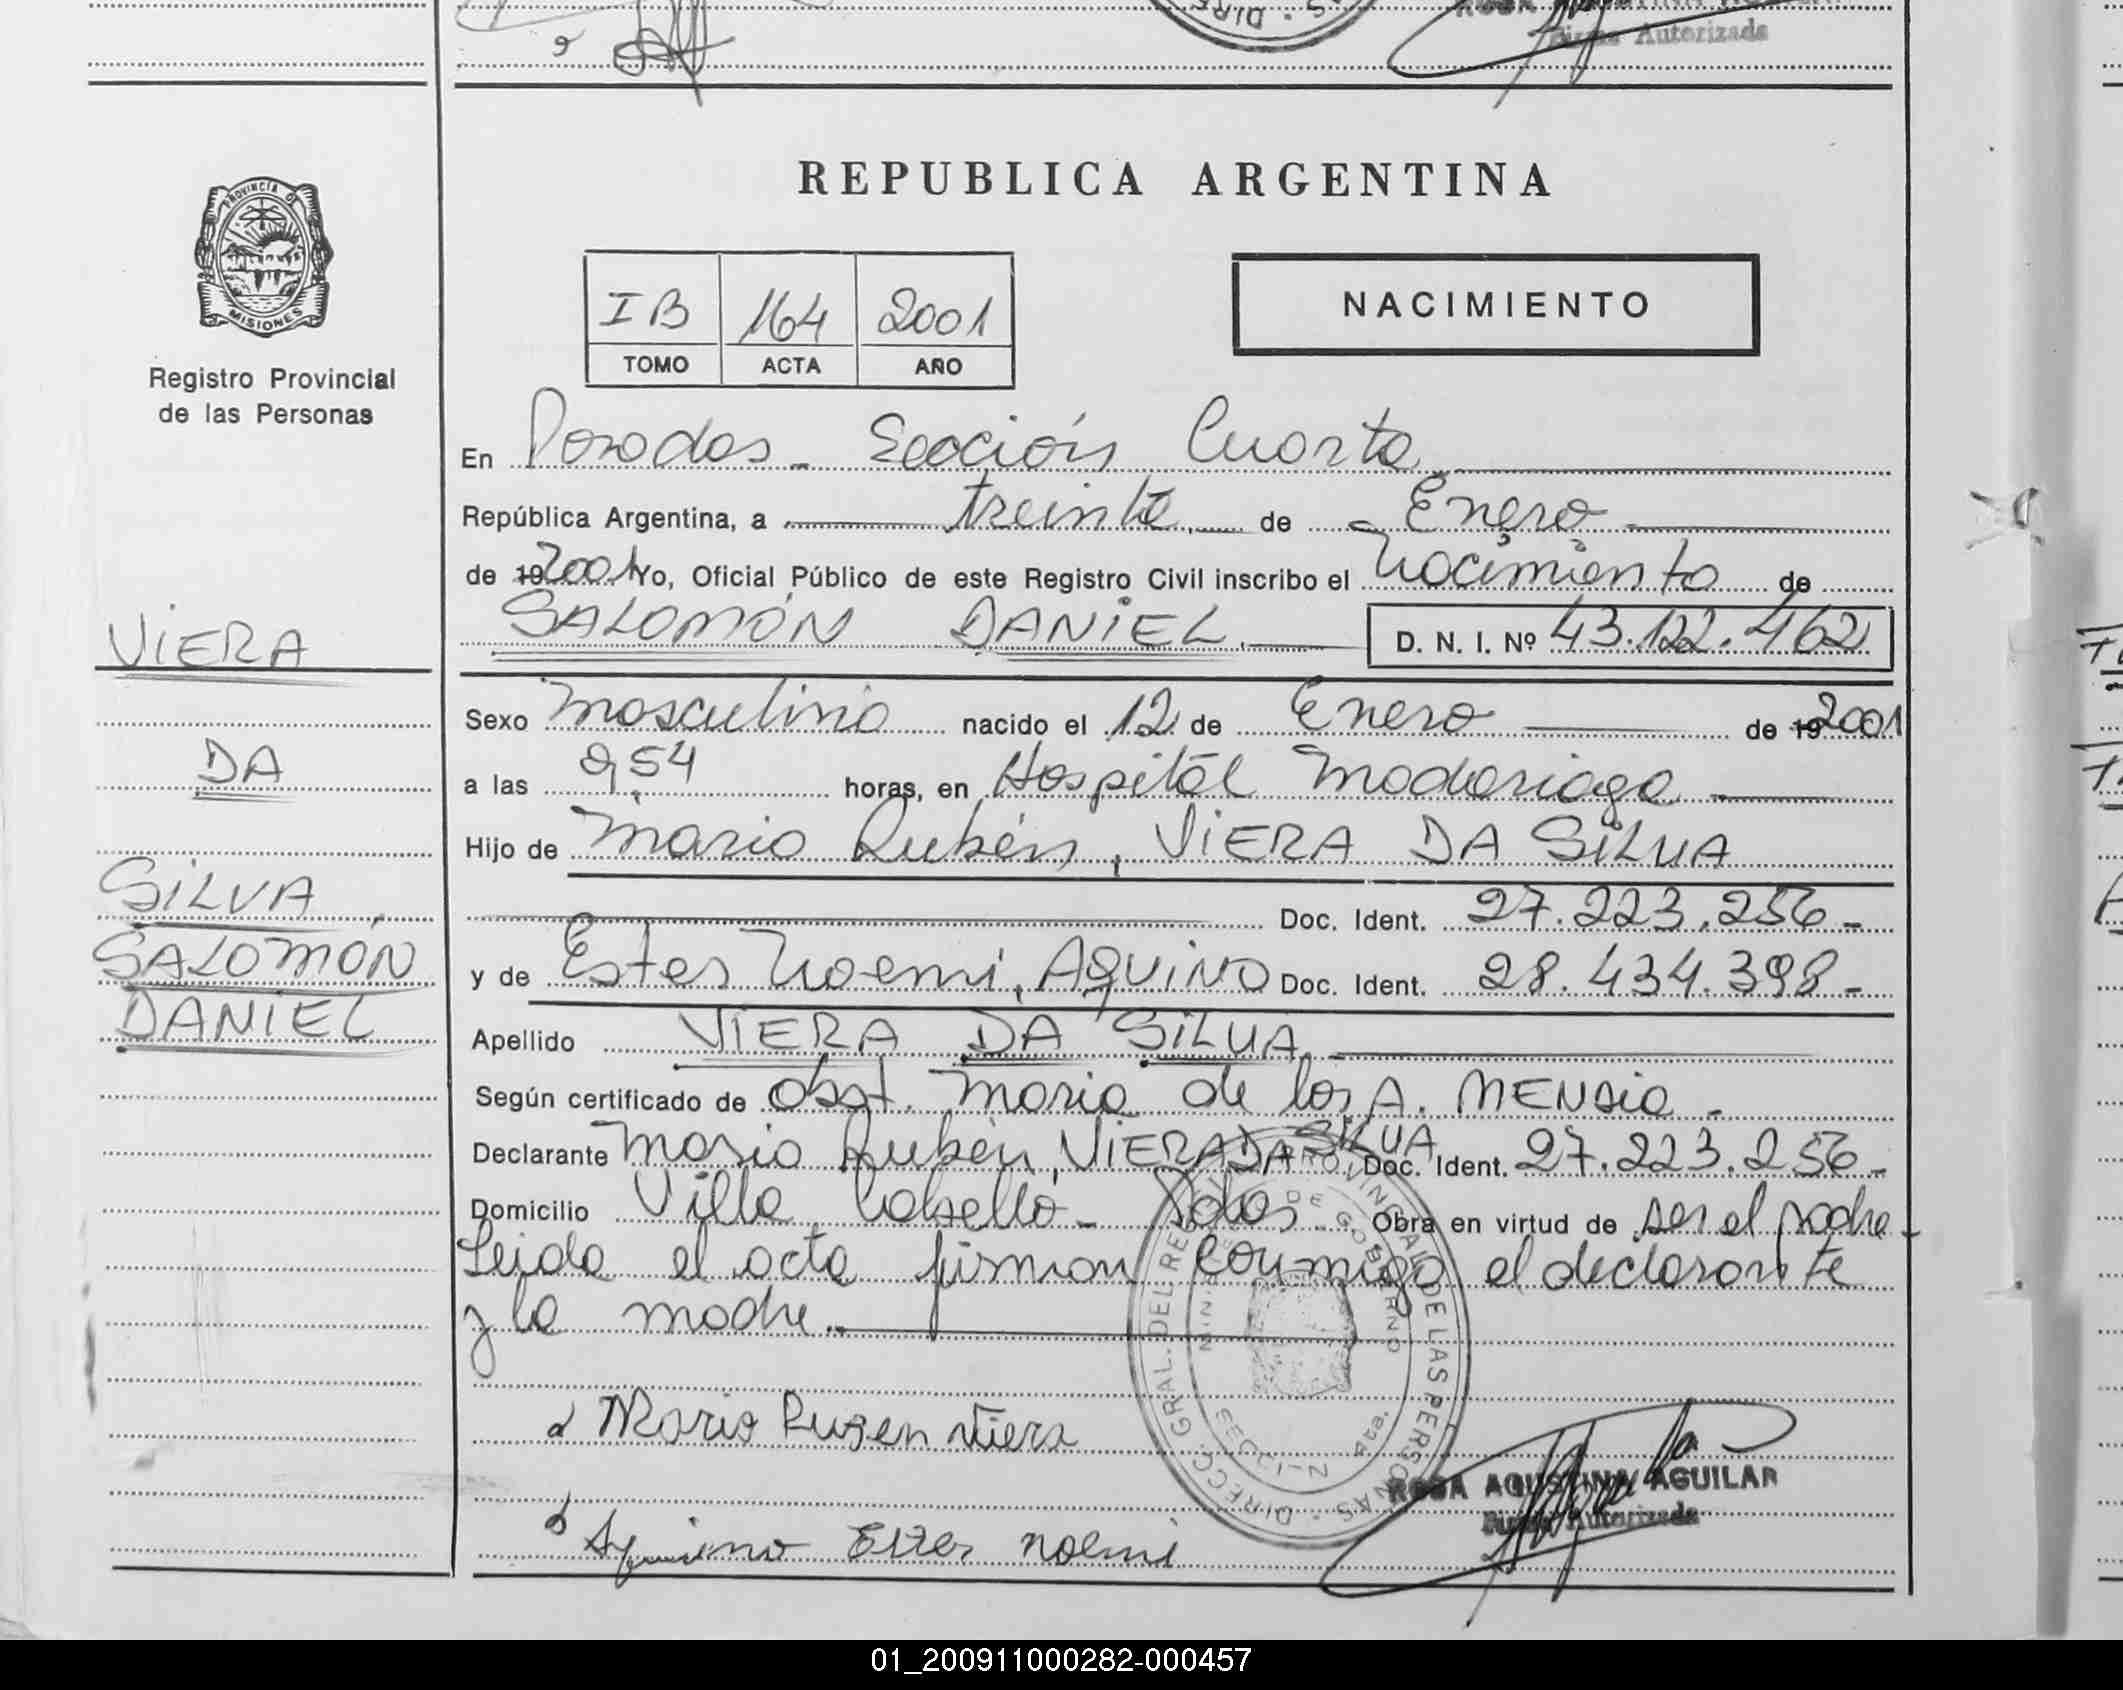 Firma Autorizada
REPUBLICA ARGENTINA
PROVINCIA DE
MISIONES
Registro Provincial
de las Personas
IB 164 2001
TOMO ACTA AÑO
NACIMIENTO
En Posadas - Sección Cuarta
República Argentina, a treinta de Enero
de 19 2001 Yo, Oficial Público de este Registro Civil inscribo el Nacimiento de
SALOMÓN DANIEL D. N. I. Nº 43.122.462
VIERA
DA
SILVA,
SALOMÓN
DANIEL
Sexo Masculino nacido el 12 de Enero de 19 2001
a las 2,54 horas, en Hospital Madariaga
Hijo de Mario Rubén, VIERA DA SILVA
Doc. Ident. 27.223.256-
y de Ester Noemi, AQUINO Doc. Ident. 28.434.398-
Apellido VIERA DA SILVA
Según certificado de Obst. Maria de los A.
Declarante Mario Rubén, VIERA DA SILVA Doc. Ident. 27.223.256-
Domicilio Villa Cabello - Pdas. Obra en virtud de ser el padre-
Leida el acta firman conmigo el declarante
y la madre.
DIRECC. GRAL. DEL REG. PROVINCIAL DE LAS PERSONAS
Mario Ruben Viera
ROSA AGUSTINA AGUILAR
Firma Autorizada
Aquino Ester Noemi
01_200911000282-000457